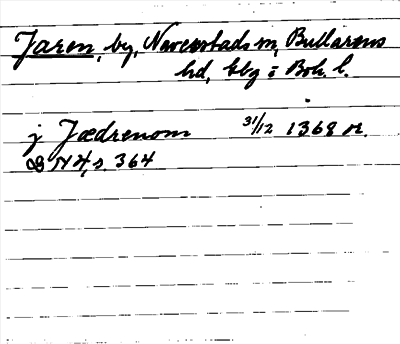 Jaren, by, Naverstads sn, Bullarens
hd, Gbg o Boh. l.
j Jædrenom 31/12 1368 or.
DN 4, s. 364